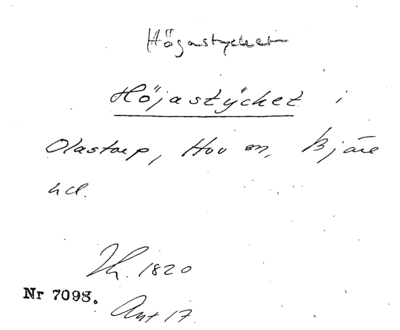 Högastycket
Höjastÿcket i
Olastorp, Hov sn, Bjäre
hd.
Th. 1820
Nr 7098.
Ant 17.